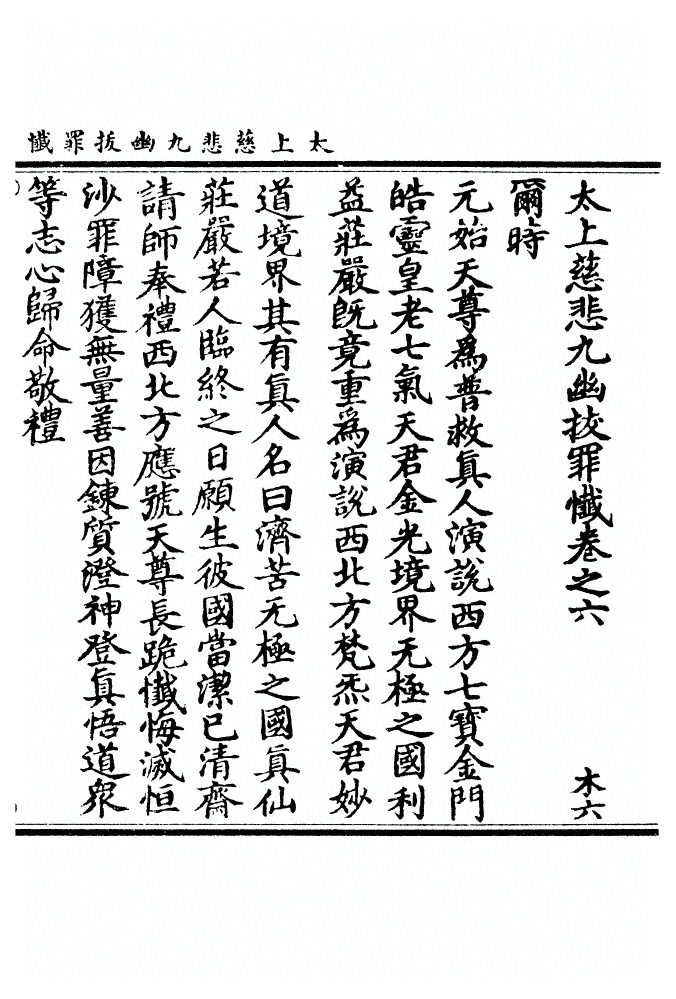 太上慈悲九幽拔罪懺
太上慈悲九幽拔罪懺卷之六 木六
爾時
元始天尊為普救真人演說西方七寶金門
皓靈皇老七氣天君金光境界无極之國利
益莊嚴既竟重為演說西北方梵炁天君妙
道境界其有真人名曰濟苦无極之國真仙
莊嚴若人臨終之日願生彼國當潔已清齋
請師奉禮西北方應號天尊長跪懺悔滅恒
沙罪障獲無量善因鍊質澄神登真悟道眾
等志心歸命敬禮